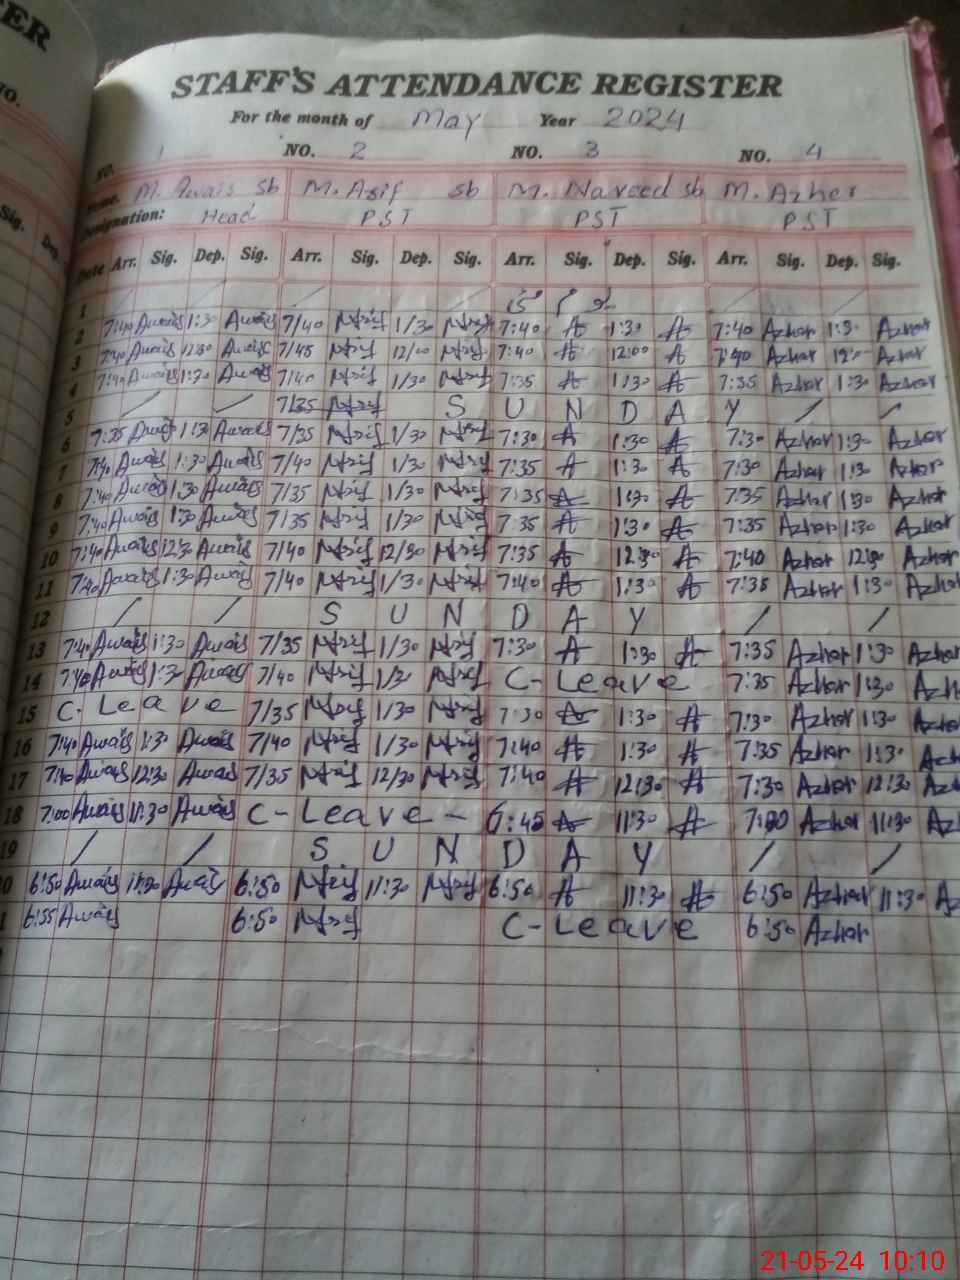 ER
STAFF'S ATTENDANCE REGISTER
NO.
For the month of May Year 2024
NO. 1 NO. 2 NO. 3 NO. 4
Name. M. Awais Sb M. Asif Sb M. Naveed Sb M. Azher
Designation: Head PST PST PST
Sig. Dep.
Date Arr. Sig. Dep. Sig. Arr. Sig. Dep. Sig. Arr. Sig. Dep. Sig. Arr. Sig. Dep. Sig.
1 / / / /
2 7:40 Awais 1:30 Awais 7/40 1/30 7:40 A 1:30 A 7:40 Azhar 1:30 Azhar
3 7:40 Awais 12:00 Awais 7/45 12/00 7:40 A 12:00 A 7:40 Azhar 12:00 Azhar
4 7:40 Awais 1:30 Awais 7/40 1/30 7:35 A 1:30 A 7:35 Azhar 1:30 Azhar
5 / / 7/35 S U N D A Y / /
6 7:35 Awais 1:30 Awais 7/35 1/30 7:30 A 1:30 A 7:30 Azhar 1:30 Azhar
7 7:40 Awais 1:30 Awais 7/40 1/30 7:35 A 1:30 A 7:30 Azhar 1:30 Azhar
8 7:40 Awais 1:30 Awais 7/35 1/30 7:35 A 1:30 A 7:35 Azhar 1:30 Azhar
9 7:40 Awais 1:30 Awais 7/35 1/30 7:35 A 1:30 A 7:35 Azhar 1:30 Azhar
10 7:40 Awais 12:30 Awais 7/40 12/30 7:35 A 12:30 A 7:40 Azhar 12:30 Azhar
11 7:40 Awais 1:30 Awais 7/40 1/30 7:40 A 1:30 A 7:35 Azhar 1:30 Azhar
12 / / S U N D A Y / /
13 7:40 Awais 1:30 Awais 7/35 1/30 7:30 A 1:30 A 7:35 Azhar 1:30 Azhar
14 7:40 Awais 1:30 Awais 7/40 1/30 C- Leave 7:35 Azhar 1:30 Azh
15 C- Leave 7/35 1/30 7:30 A 1:30 A 7:30 Azhar 1:30 Azh
16 7:40 Awais 1:30 Awais 7/40 1/30 7:40 A 1:30 A 7:35 Azhar 1:30 Azh
17 7:40 Awais 12:30 Awais 7/35 12/30 7:40 A 12:30 A 7:30 Azhar 12:30 Az
18 7:00 Awais 11:30 Awais C- Leave - 6:45 A 11:30 A 7:00 Azhar 11:30 Az
19 / / S U N D A Y / /
0 6:50 Awais 11:30 Awais 6:50 11:30 6:50 A 11:30 A 6:50 Azhar 11:30 Az
1 6:55 Awais 6:50 C- Leave 6:50 Azhar
21-05-24 10:10